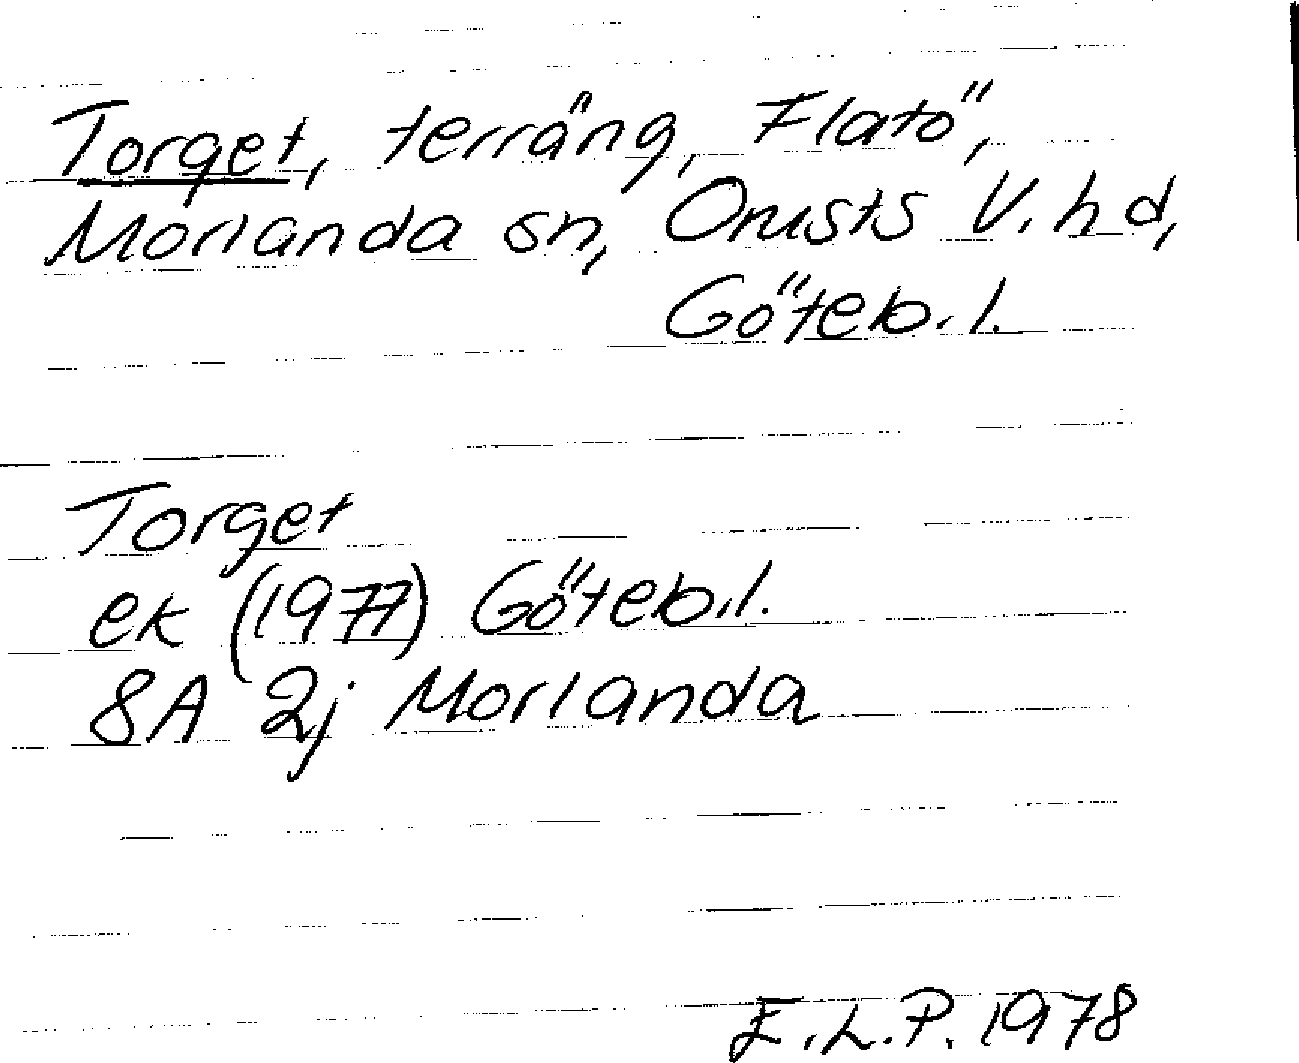 Torget, terräng, Flatö,
Morlanda sn, Orusts V. hd,
Göteb. l.
Torget
ek (1977) Göteb.l.
8A 2j Morlanda
E.L.P. 1978